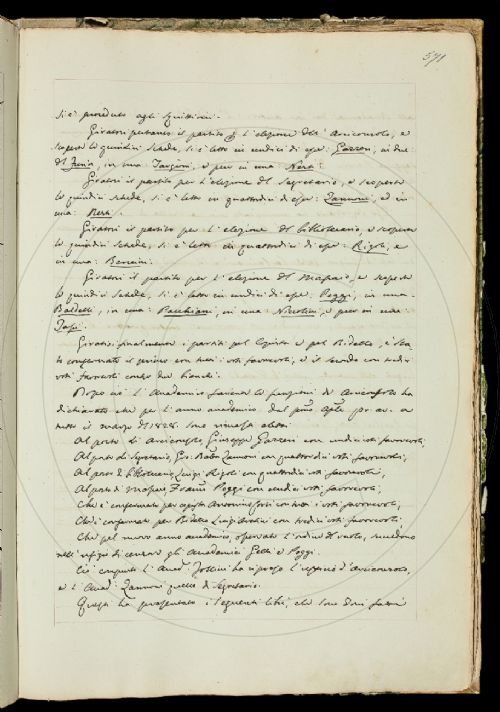 571
Si è proceduto agli squittinj.
Giratosi pertanto il partito per l'elezione dell'Arciconsolo, e
scoperte le quindici schede, si è letto in undici di esse: Gazzeri, in due
del Furia, in una: Targioni, e pure in una: Nesti.
Giratosi il partito per l'elezione del Segretario, e scoperte
le quindici schede, si è letto in quattordici di esse: Zannoni, ed in
una: Nesti.
Giratosi il partito per l'elezione del bibliotecario, e scoperte
le quindici schede, si è letto in quattordici di esse: Rigoli, e
in una: Bencini.
Giratosi il partito per l'elezione del Massaio, e scoperte
le quindici schede, si è letto in undici di esse: Poggi, in una:
Baldelli, in una: Pacchiani, in una: Niccolini, e pure in una:
Tassi.
Giratisi finalmente i partiti pel e pel Bidello, è sta-
to confermato il primo con tutti i voti favorevoli, e il secondo con tredici
voti favorevoli contro due bianchi.
Dopo ciò l'Accademico facente le funzioni di Arciconsolo ha
dichiarato che per l'anno accademico dal primo a
tutto il marzo del 1828. sono rimasti eletti:
Al posto di Arciconsolo, Giuseppe Gazzeri con undici voti favorevoli;
Al posto di Segretario, Gio: Batta Zannoni con quattordici voti favorevoli;
Al posto di bibliotecario, Luigi Rigoli con quattordici voti favorevoli;
Al posto di Massaio, Franc. Poggi con undici voti favorevoli;
Che è confermato per con tutti i voti favorevoli,
Ch'è confermato per Bidello Luigi con tredici voti favorevoli;
Che pel nuovo anno accademico, osservato l'ordine del ruolo, succedono
nell'ufizio di censori gli Accademici e Poggi.
Ciò compiuto l'Accad. ha ripreso l'uffizio d'Arciconsolo,
e l'Accad. Zannoni quello di Segretario.
Questi ha presentato i seguenti libri, che sono doni fatti